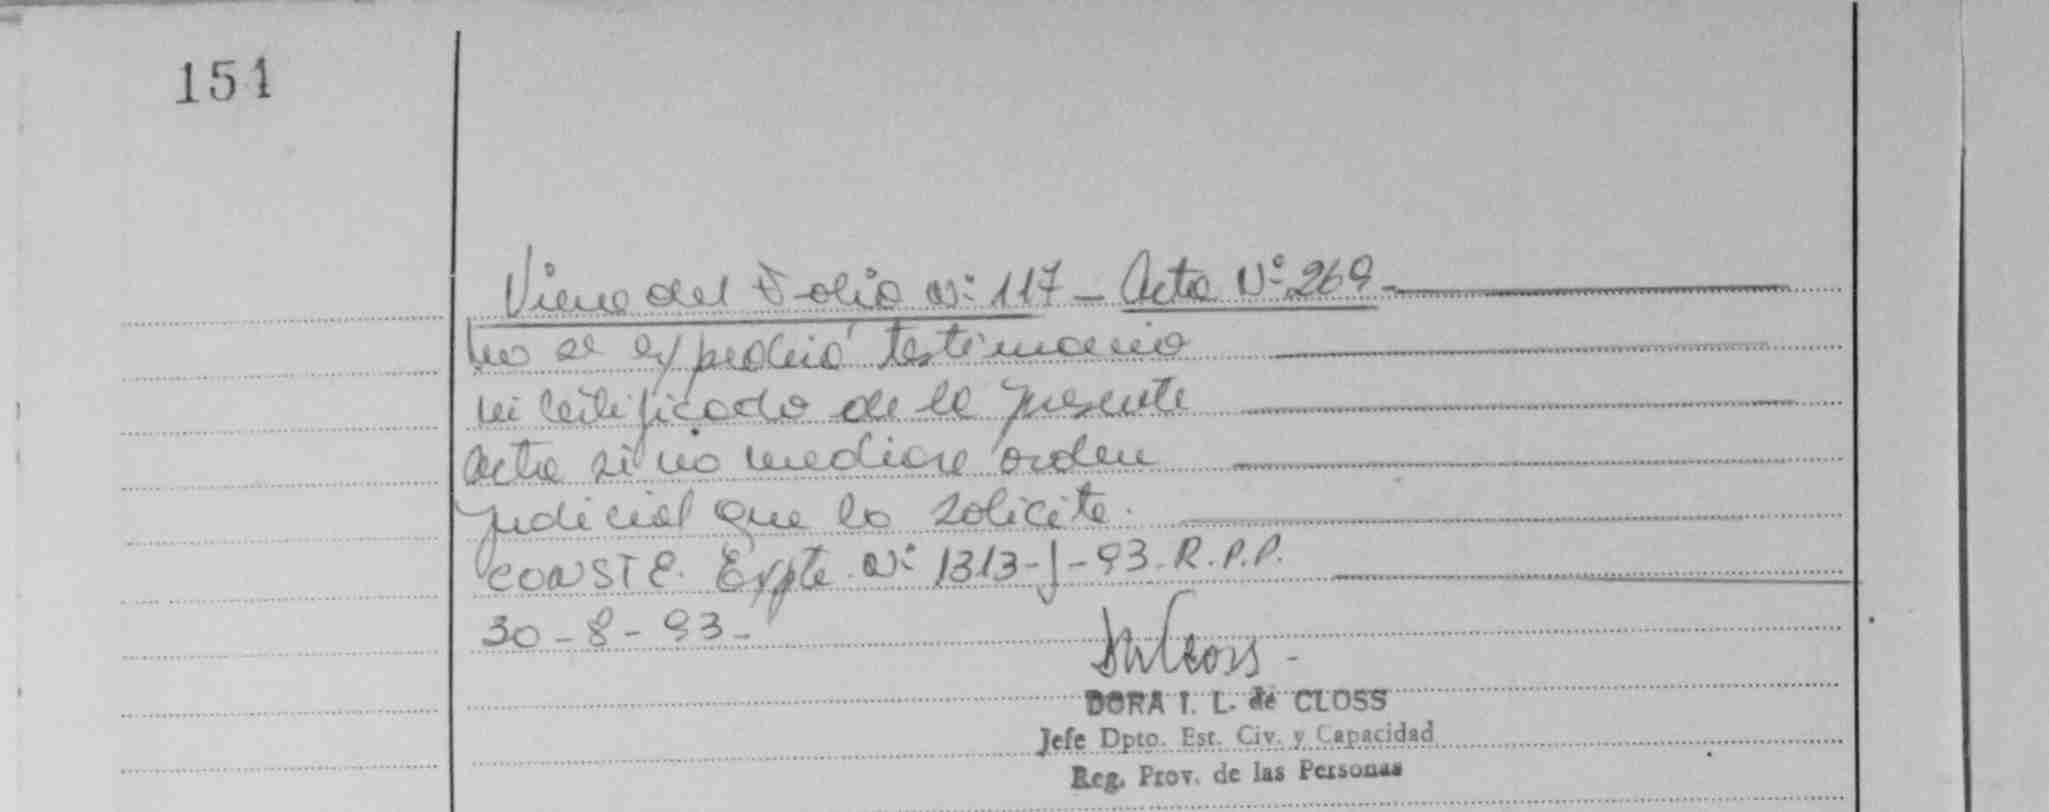 151
Viene del Folio Nº 117 - Acta Nº 269 -
no se expedirá testimonio
ni certificado de la presente
acta si no mediare orden
judicial que lo solicite.
CONSTE. Expte. Nº 1313-J-93-R.P.P.
30-8-93-
DORA I. L. de CLOSS
Jefe Dpto. Est. Civ. y Capacidad
Reg. Prov. de las Personas